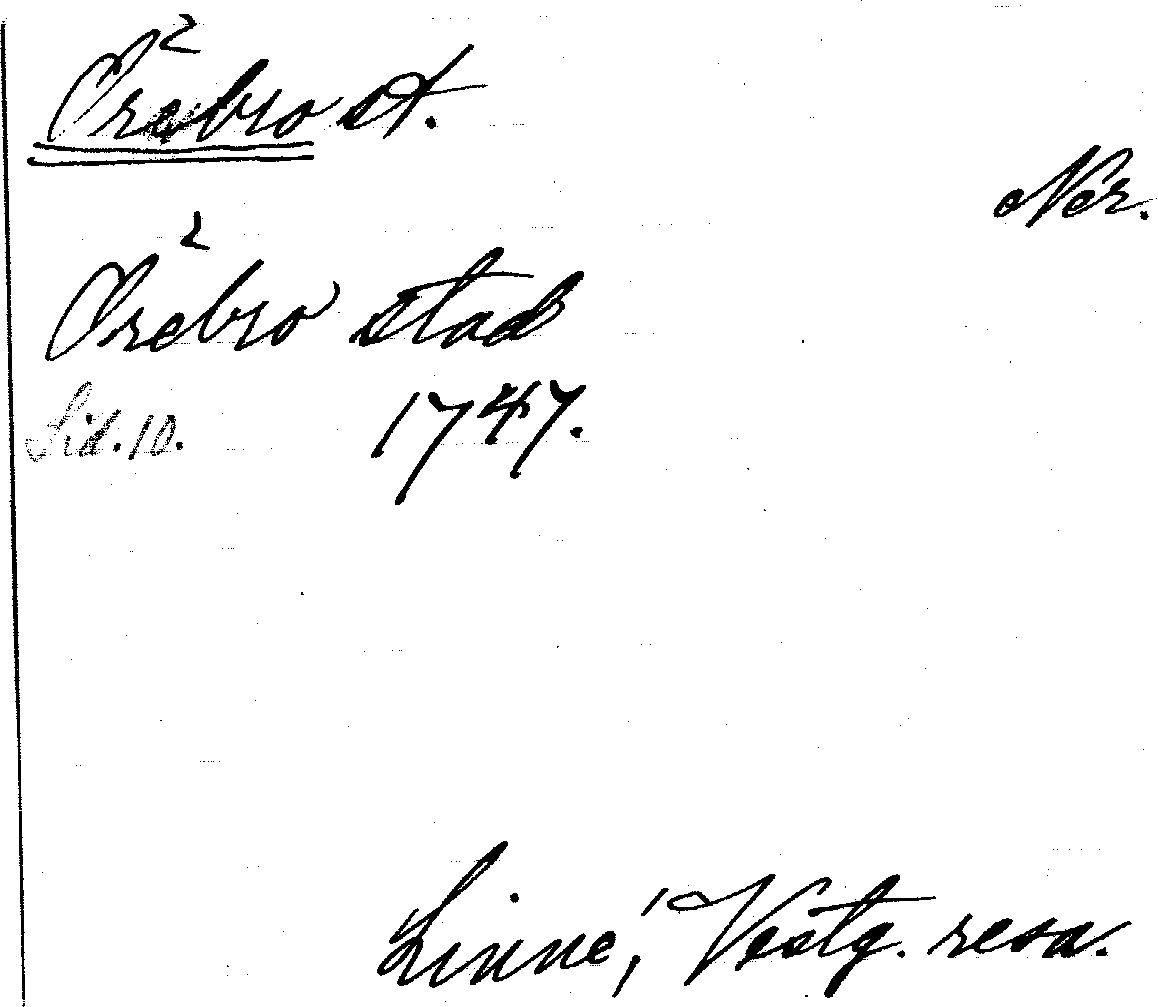 Örebro st.
Ner.
Örebro stad
Sid. 10. 1747.
Linné, Vestg. resa.